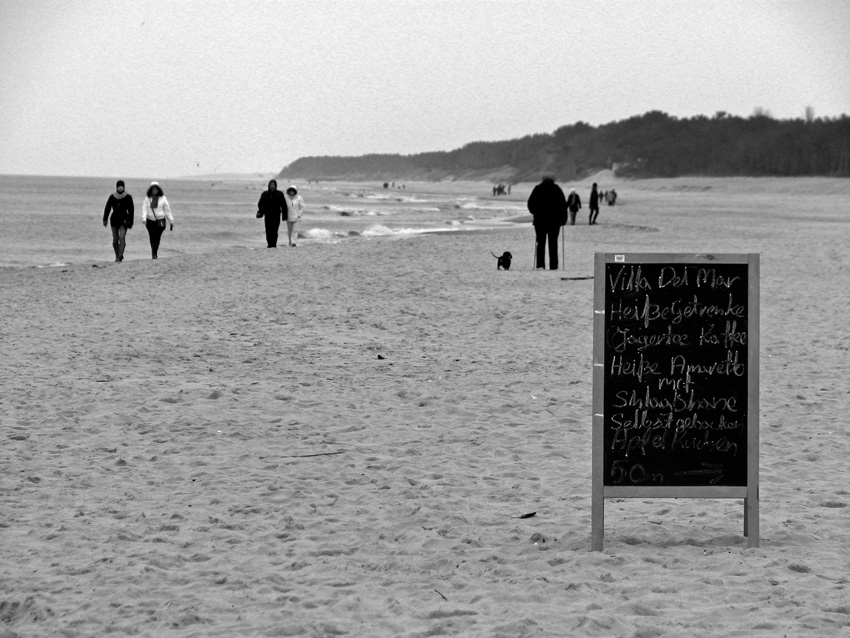 Villa Del Mar
Heiße Getränke
Jagertee Kaffee
Heiße Amaretto
mit
Schlagsahne
Selbst gebacken
Apfel Kuchen
50m